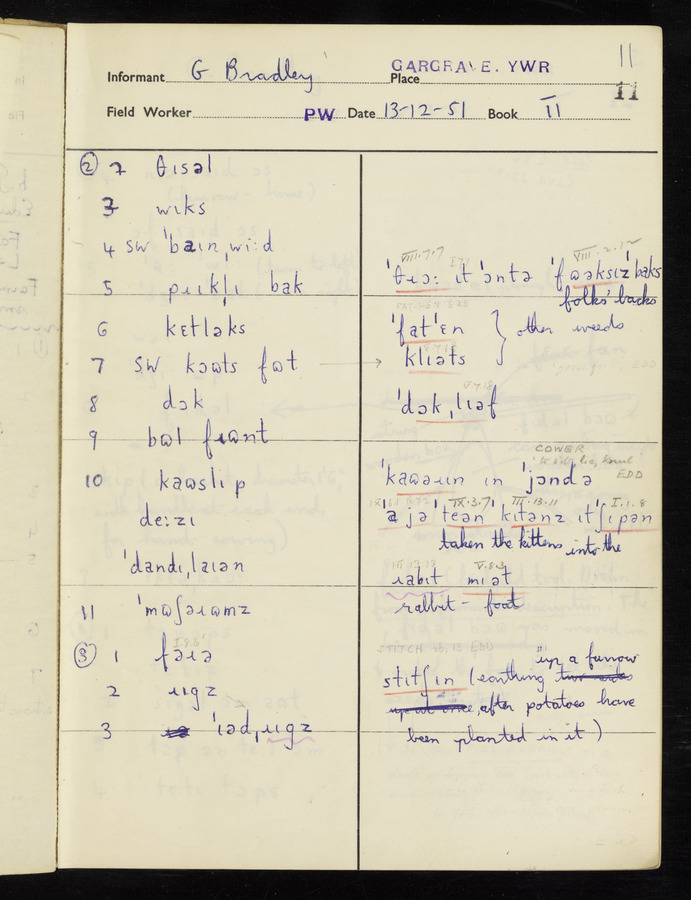 Informant G Bradley Place GARGRAVE. YWR 11
11
Field Worker PW Date 13-12-51 Book II
② 2 θɪsəl
3 wɪks
4 SW ˈbaɪnˌwiːd
5 pɹɪkl̩ɪ bak
6 kɛtləks
7 SW kɔʊts fʊt
8 dɔk
9 bʊl fɹʊnt
10 kaʊslɪp
deːzɪ
ˈdandɪˌlaɪən
11 ˈmʊʃəɹʊmz
I.8.6
③ 1 fəɹə
2 ɹɪgz
3 ˈɪədˌɹɪgz
VIII.7.7 VIII.2.12
ɪt ˈɔntə ˈfʊəksɪz ˈbaks
folks' backs
ˈfatˈɛn } other weeds
klɪəts
V.7.18
ˈdɔkˌlɪəf
COWER
EDD
ˈkaʊəɹɪn ɪn ˈjɔndə
IX.3.7 III.13.11 I.1.8
ˈa jəˈtɛən ˈkɪtənz ɪtˈʃɪpən
taken the kittens into the
ɹabɪt mɪət
rabbit - foot
STITCH sb. 13 EDD
up a furrow
stɪtʃɪn (earthing
, after potatoes have
been planted in it)